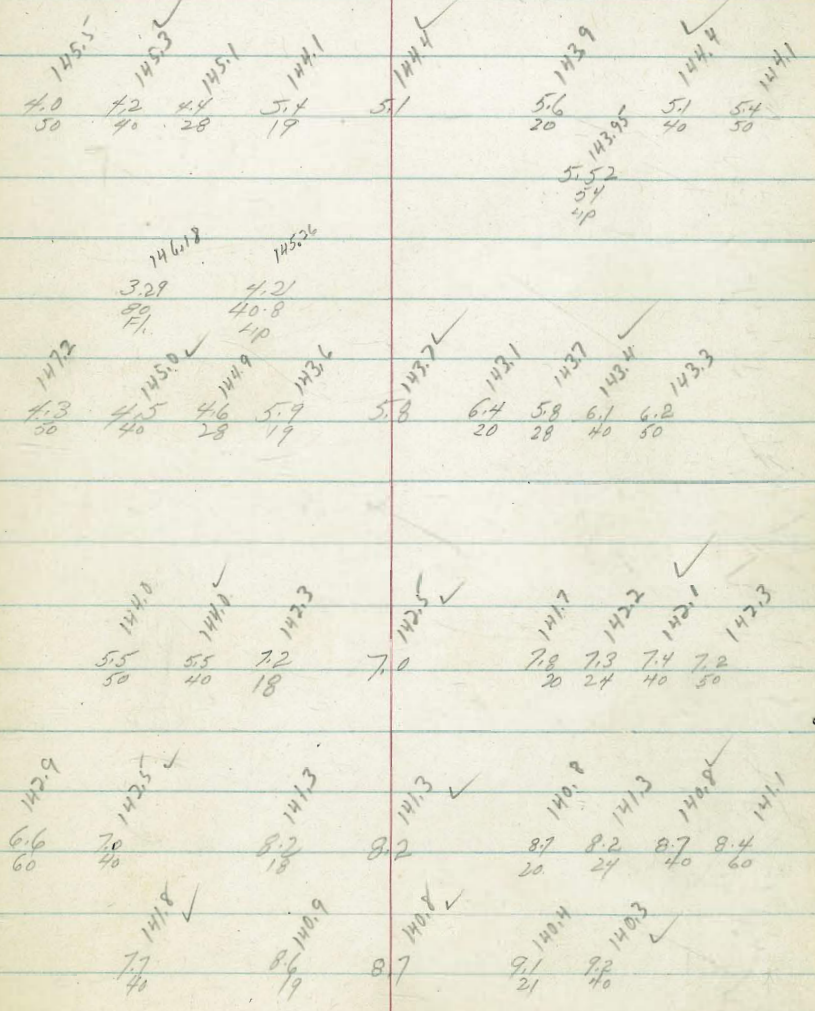 145.5 145.3 ✓ 145.1 144.1 144.4 ✓ 143.9 144.4 ✓ 144.1
4.0 4.2 4.4 5.4 5.1 5.6 5.1 5.4
50 40 28 19 20 40 50
143.95
5.52
54
146.18 145.26
3.29 4.21
80 40.8
Fl.
147.2 145.0 ✓ 144.9 143.6 143.7 ✓ 143.1 143.7 143.4 ✓ 143.3
4.3 4.5 4.6 5.9 5.8 6.4 5.8 6.1 6.2
50 40 28 19 20 28 40 50
144.0 144.0 ✓ 142.3 142.5 ✓ 141.7 142.2 142.1 ✓ 142.3
5.5 5.5 7.2 7.0 7.8 7.3 7.4 7.2
50 40 18 20 24 40 50
142.9 142.5 ✓ 141.3 141.3 ✓ 140.8 141.3 140.8 ✓ 141.1
6.6 7.0 8.2 8.2 8.7 8.2 8.7 8.4
60 40 18 20 24 40 60
141.8 ✓ 140.9 140.8 ✓ 140.4 140.3 ✓
7.7 8.6 8.7 9.1 9.2
40 19 21 40